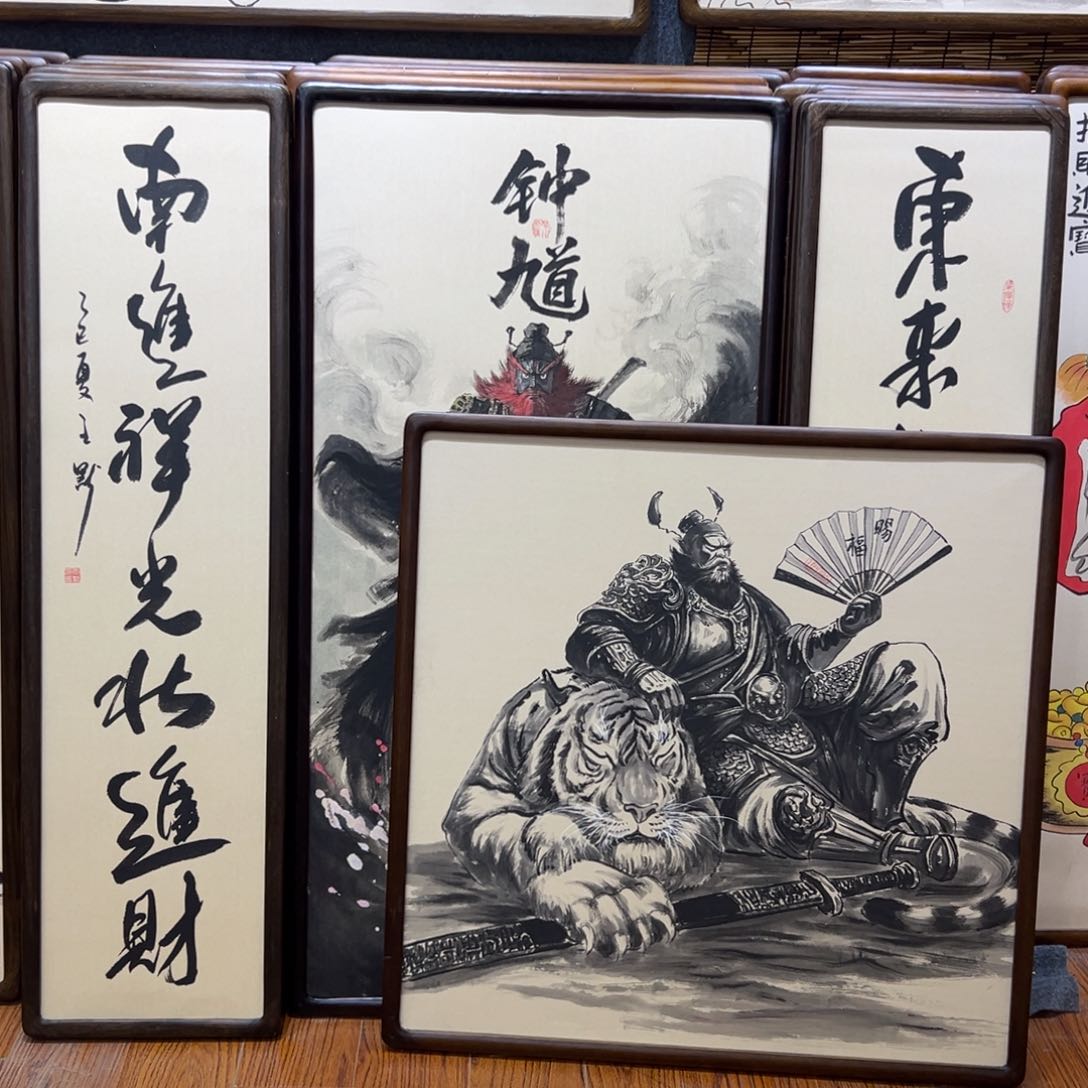 南進祥光北進財
乙巳夏
钟馗
東来
賜福
招財進寶